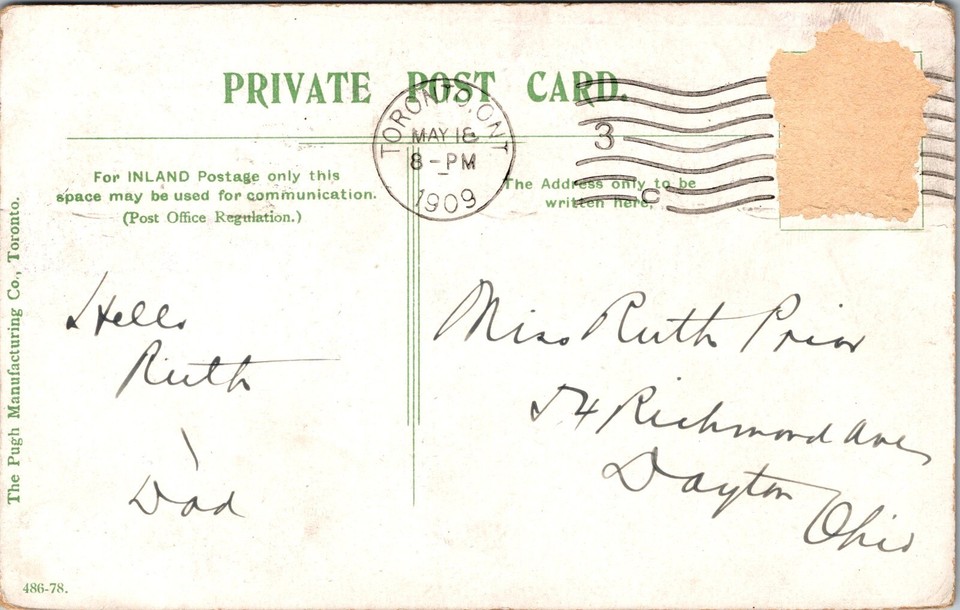 PRIVATE POST CARD.
TORONTO, ONT
MAY 18
8-PM
1909
3
C
For INLAND Postage only this
space may be used for communication.
(Post Office Regulation.)
The Address only to be
written here,
The Pugh Manufacturing Co., Toronto.
Hello
Ruth
Dad
Miss Ruth Prior
54 Richmond Ave
Dayton
Ohio
486-78.